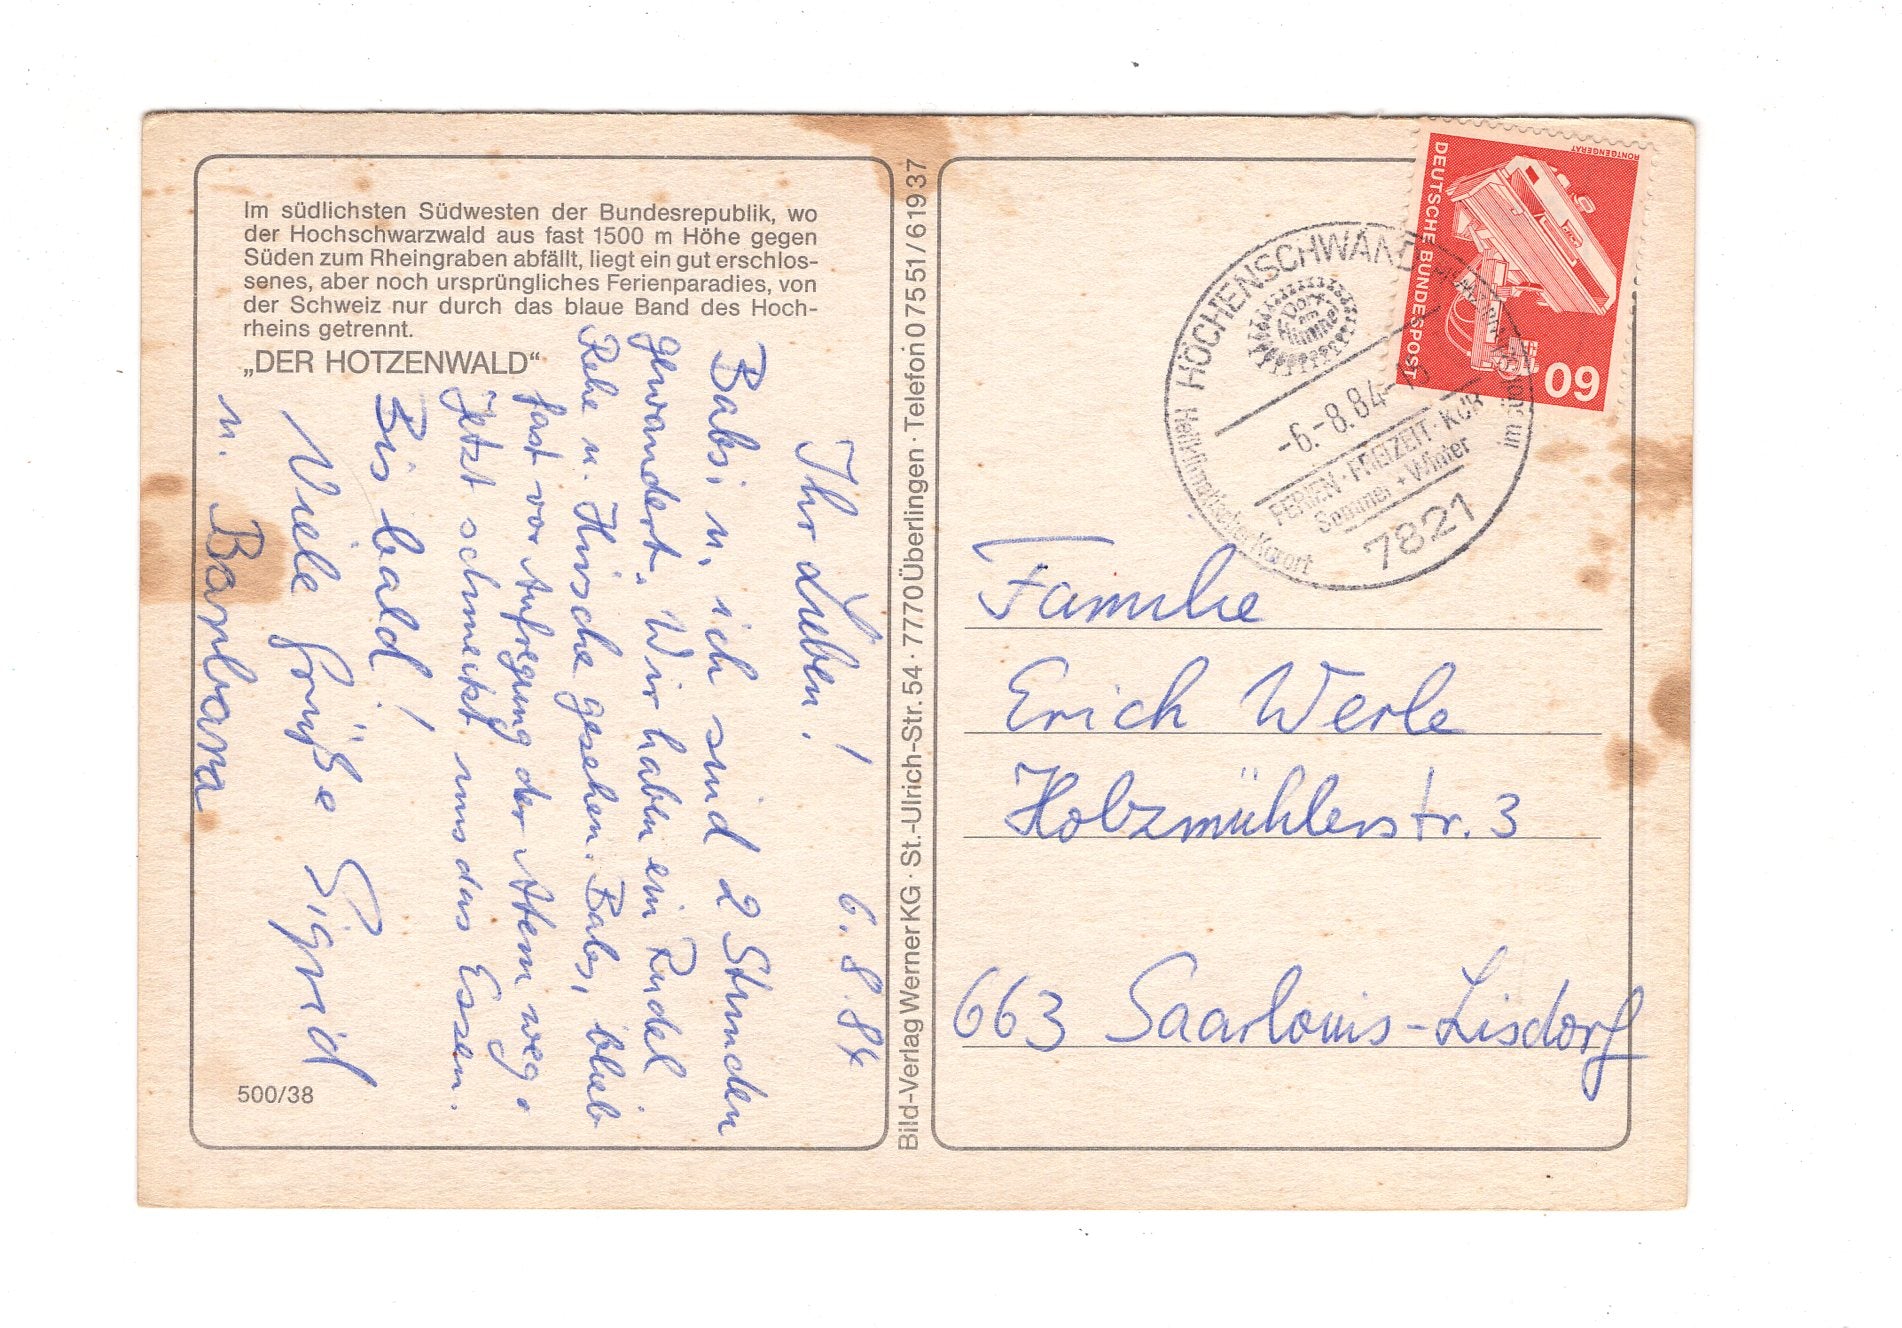 Im südlichsten Südwesten der Bundesrepublik, wo
der Hochschwarzwald aus fast 1500 m Höhe gegen
Süden zum Rheingraben abfällt, liegt ein gut erschlos-
senes, aber noch ursprüngliches Ferienparadies, von
der Schweiz nur durch das blaue Band des Hoch-
rheins getrennt.
„DER HOTZENWALD“
6.8.84
Ihr Lieben!
Babsi u. ich sind 2 Stunden
gewandert. Wir haben ein Rudel
Rehe u. Hirsche gesehen. Babsi blieb
fast vor Aufregung der Atem weg.
Jetzt schmeckt uns das Essen.
Bis bald!
Viele Grüße Sigrid
u. Barbara
500/38
Bild-Verlag Werner KG · St.-Ulrich-Str. 54 · 7770 Überlingen · Telefon 0 75 51 / 6 19 37
RÖNTGENGERÄT
DEUTSCHE BUNDESPOST
60
HÖCHENSCHWAND
Dorf
am
Himmel
-6.-8.84-
FERIEN · FREIZEIT · KUR
Sommer + Winter
7821
Heilklimatischer Kurort
im
Familie
Erich Werle
Holzmühlerstr. 3
663 Saarlouis-Lisdorf